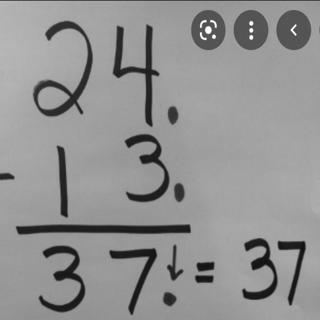 24.
- 13.
37. ↓ = 37